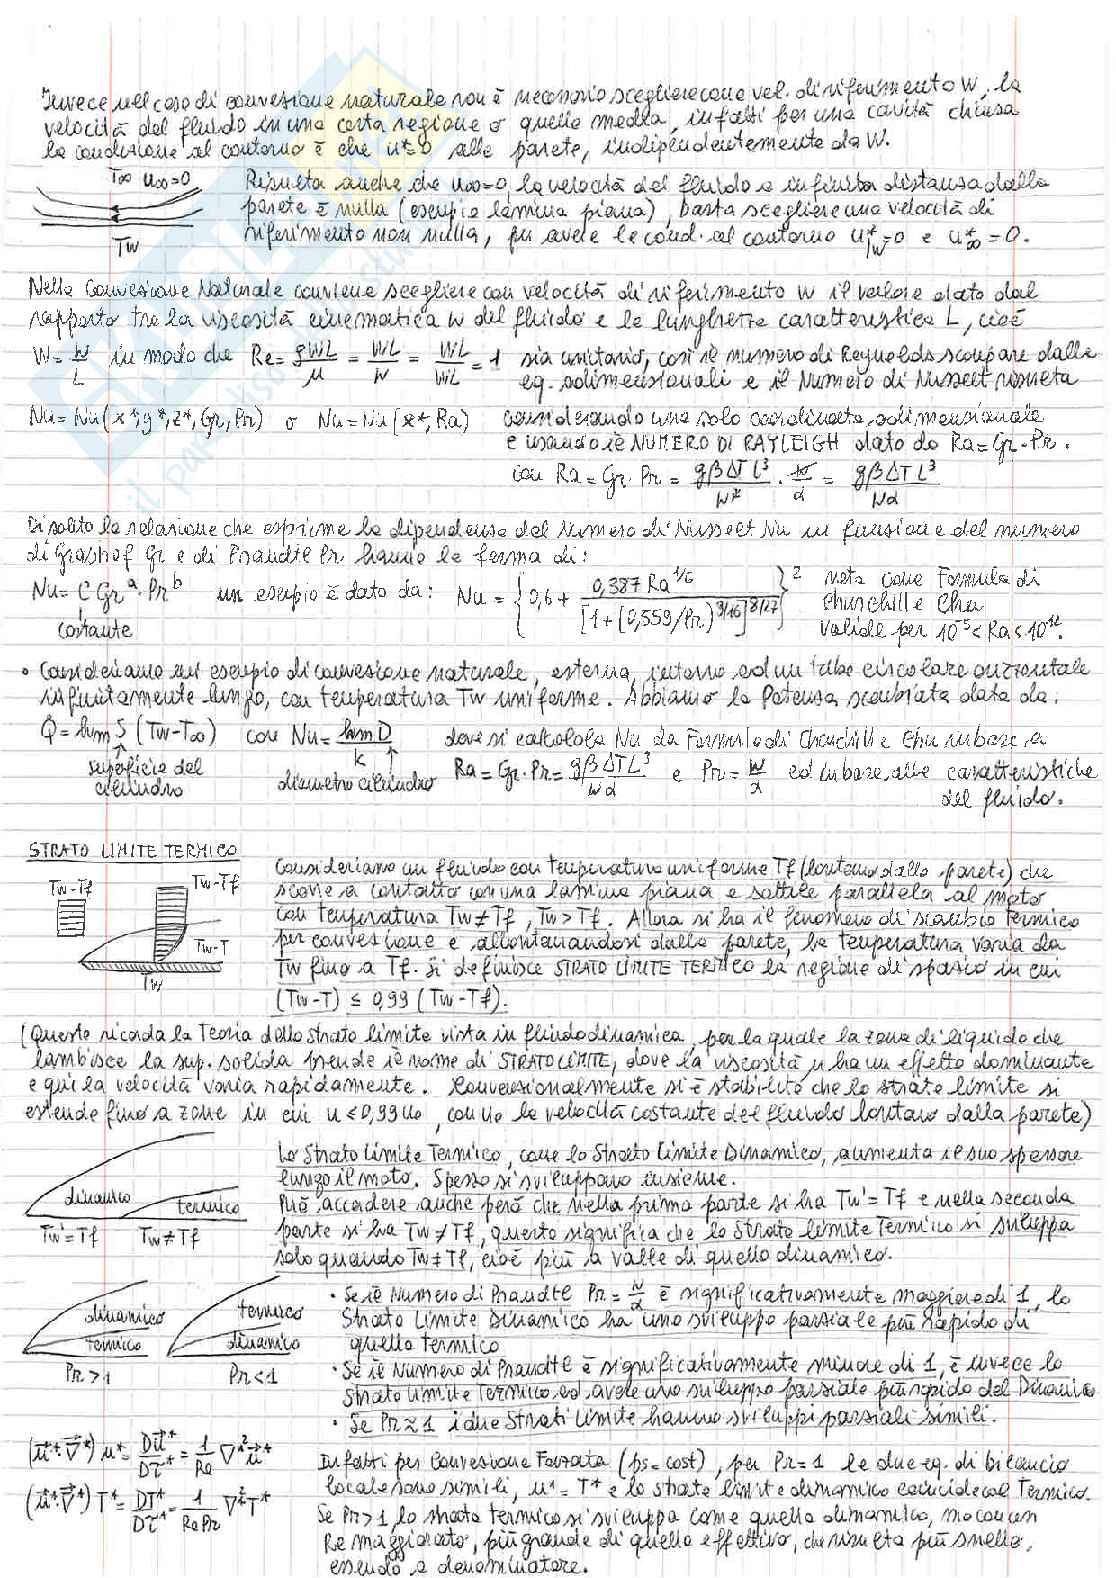 Invece nel caso di convezione naturale non è necessario scegliere come vel. di riferimento W, la
velocità del fluido in una certa regione o quella media, infatti per una cavità chiusa
la condizione al contorno è che u*=0 alla parete, indipendentemente da W.
T∞ u∞=0
Tw
Risulta anche che u∞=0, la velocità del fluido a infinita distanza dalla
parete è nulla (esempio lamina piana), basta scegliere una velocità di
riferimento non nulla, per avere le cond. al contorno u*|w=0 e u*∞=0.
Nella Convezione Naturale conviene scegliere con velocità di riferimento W il valore dato dal
rapporto tra la viscosità cinematica ν del fluido e la lunghezza caratteristica L, cioè
W = ν/L in modo che Re = ρWL/μ = WL/ν = WL/WL = 1 sia unitario, così il numero di Reynolds scompare dalle
eq. adimensionali e il Numero di Nusselt risulta
Nu=Nu(x*,y*,z*,Gr,Pr) o Nu=Nu(x*,Ra) considerando una sola coordinata adimensionale
e usando il NUMERO DI RAYLEIGH dato da Ra=Gr·Pr.
con Ra = Gr·Pr = gβΔTL³/ν² · ν/α = gβΔTL³/να
Di solito la relazione che esprime la dipendenza del Numero di Nusselt Nu in funzione del numero
di Grashof Gr e di Prandtl Pr hanno la forma di:
Nu = C Gr^a · Pr^b un esempio è dato da: Nu = {0,6 + 0,387 Ra^1/6 / [1+(0,559/Pr)^9/16]^8/27}² nota come Formula di
Churchill e Chu
costante
valida per 10^-5 < Ra < 10^12.
• Consideriamo un esempio di convezione naturale, esterna, intorno ad un tubo circolare orizzontale
infinitamente lungo, con temperatura Tw uniforme. Abbiamo la Potenza scambiata data da:
Q = hm S (Tw-T∞) con Nu = hm D/k dove si calcola la Nu da Formula di Churchill e Chu in base a
superficie del
cilindro
diametro cilindro
Ra = Gr·Pr = gβΔTL³/να e Pr = ν/α ed in base alle caratteristiche
del fluido.
STRATO LIMITE TERMICO
Tw-Tf
Tw-Tf
Tw-T
Tw
Consideriamo un fluido con temperatura uniforme Tf (lontano dalla parete) che
scorre a contatto con una lamina piana e sottile parallela al moto
con temperatura Tw≠Tf, Tw>Tf. Allora si ha il fenomeno di scambio termico
per convezione e allontanandosi dalla parete, la temperatura varia da
Tw fino a Tf. Si definisce STRATO LIMITE TERMICO la regione di spazio in cui
(Tw-T) ≤ 0,99 (Tw-Tf).
(Questo ricorda la Teoria dello strato limite vista in fluidodinamica, per la quale la zona di liquido che
lambisce la sup. solida prende il nome di STRATO LIMITE, dove la viscosità μ ha un effetto dominante
e qui la velocità varia rapidamente. Convenzionalmente si è stabilito che lo strato limite si
estende fino a zone in cui u ≤ 0,99 u0, con u0 la velocità costante del fluido lontano dalla parete)
dinamico
termico
Tw'=Tf Tw≠Tf
Lo Strato Limite Termico, come lo Strato Limite Dinamico, aumenta il suo spessore
lungo il moto. Spesso si sviluppano insieme.
Può accadere anche però che nella prima parte si ha Tw'=Tf e nella seconda
parte si ha Tw≠Tf, questo significa che lo Strato Limite Termico si sviluppa
solo quando Tw≠Tf, cioè più a valle di quello dinamico.
dinamico
termico
Pr>1
termico
dinamico
Pr<1
• Se il Numero di Prandtl Pr = ν/α è significativamente maggiore di 1, lo
Strato Limite Dinamico ha uno sviluppo parziale più rapido di
quello termico
• Se il Numero di Prandtl è significativamente minore di 1, è invece lo
strato limite termico ad avere uno sviluppo parziale più rapido del Dinamico
• Se Pr≈1 i due Strati Limite hanno sviluppi parziali simili.
(u*·∇*) u* = Du*/Dτ* = 1/Re ∇*² u*
(u*·∇*) T* = DT*/Dτ* = 1/RePr ∇*² T*
Infatti per Convezione Forzata (ps=cost), per Pr=1 le due eq. di bilancio
locale sono simili, u*=T* e lo strato limite dinamico coincide col Termico.
Se Pr>1, lo strato termico si sviluppa come quello dinamico, ma con un
Re maggiorato, più grande di quello effettivo, che risulta più snello,
essendo a denominatore.